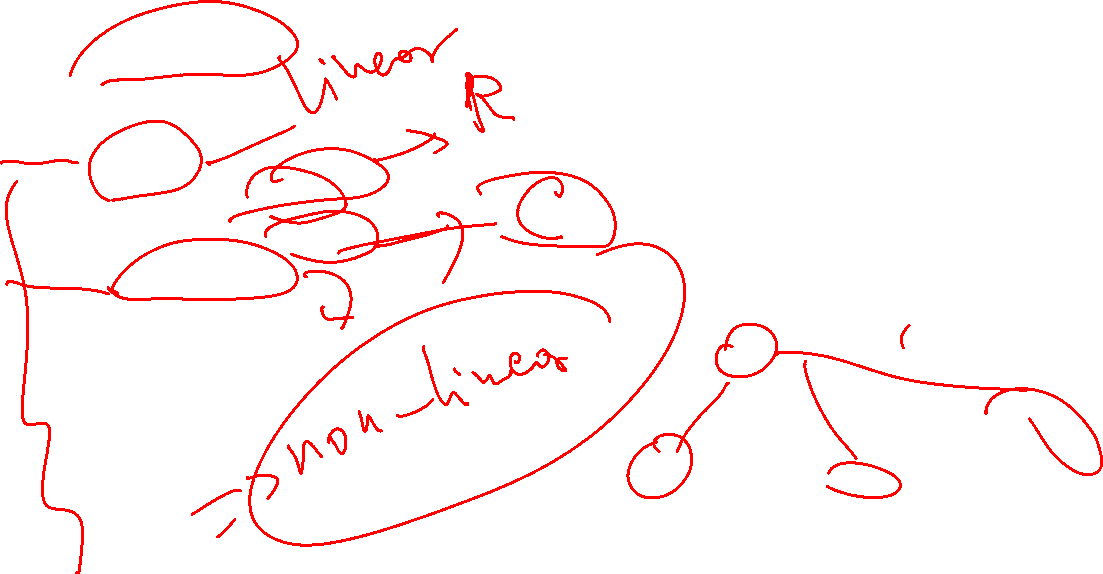 linear
R
non-linear